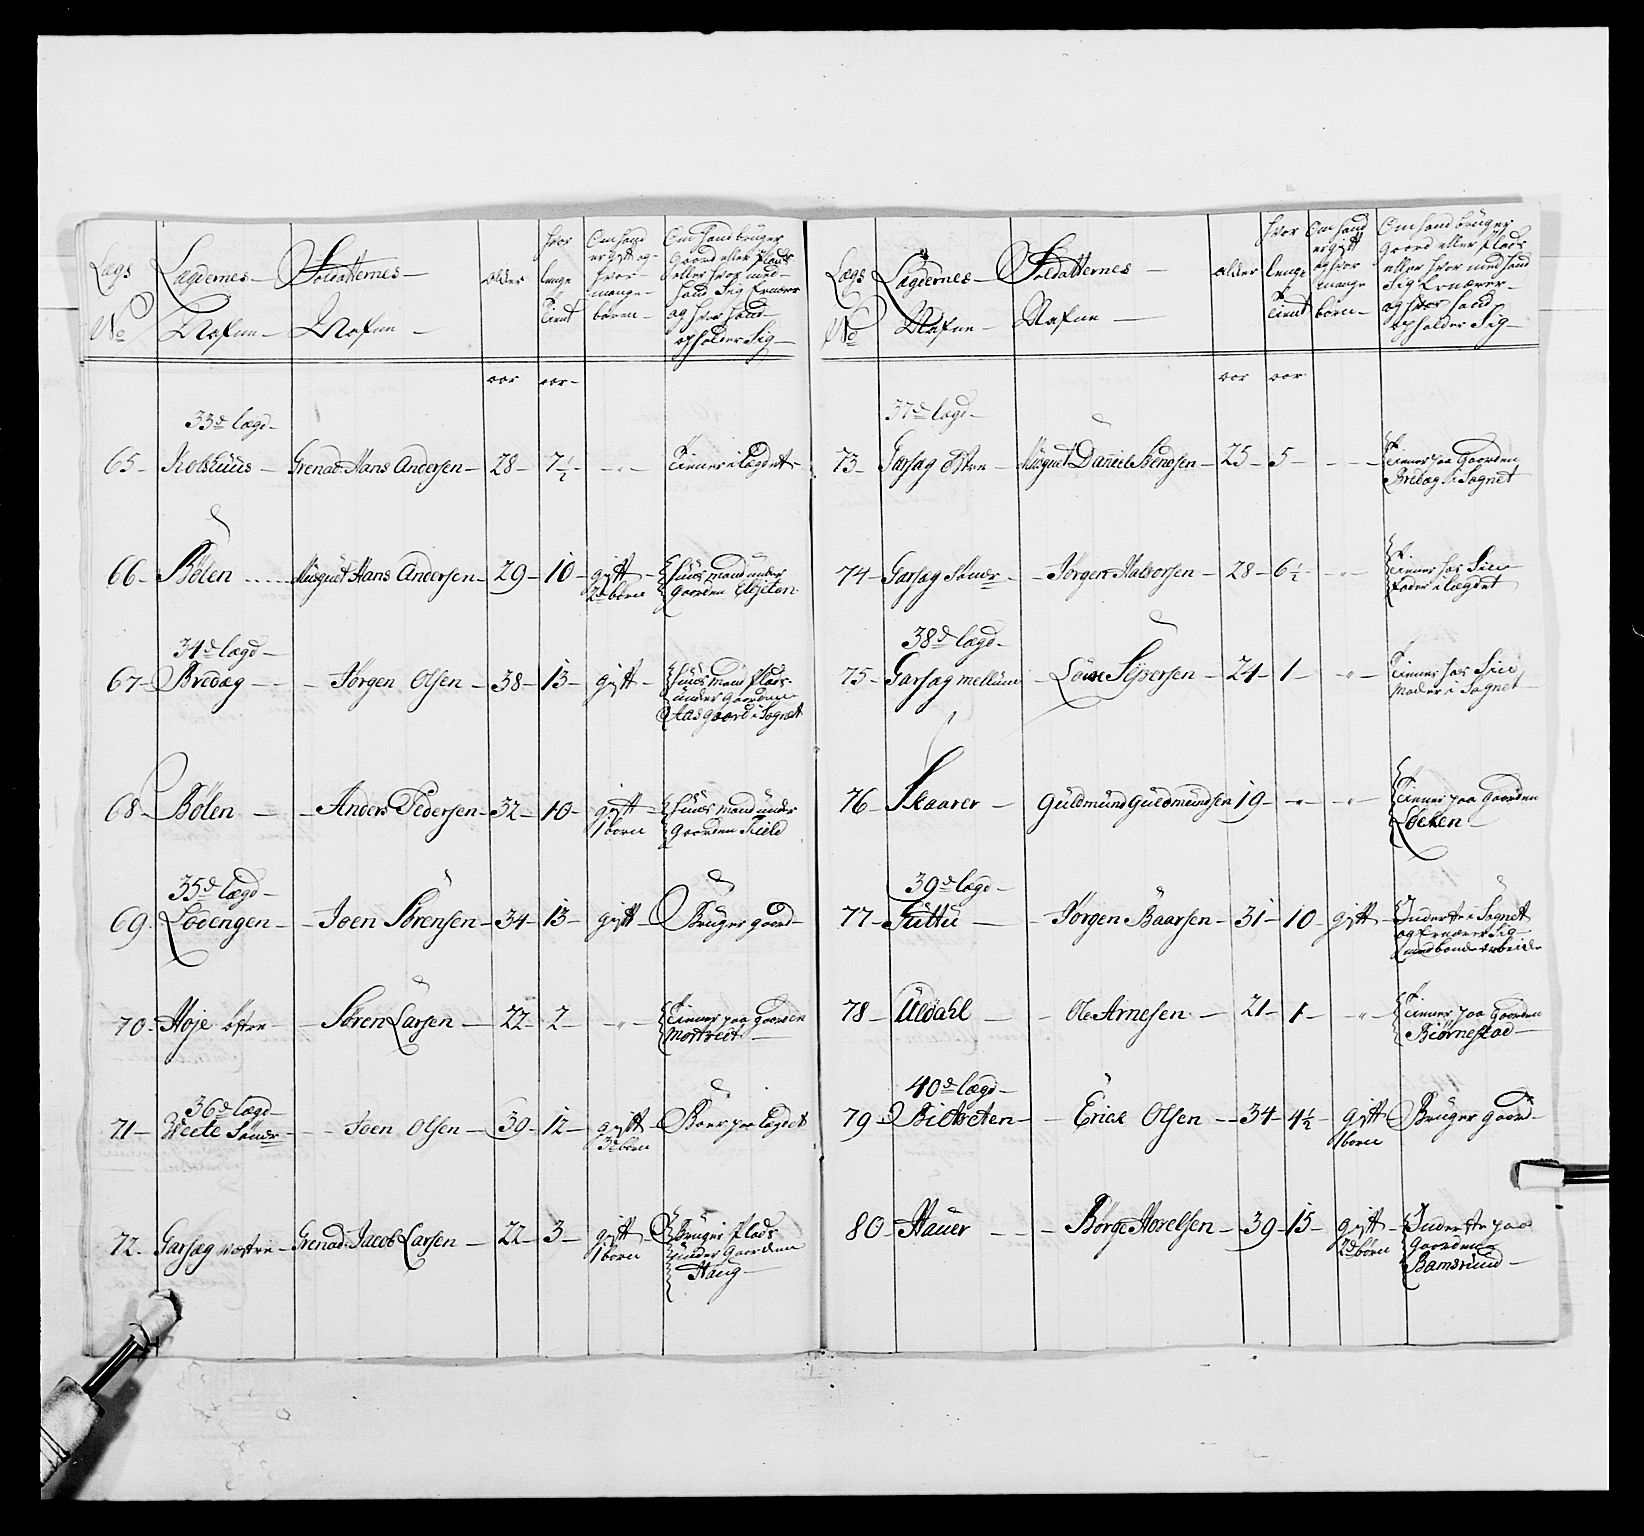 Lægs Lægdernes – Soldatternes –
No Nafne – Nafne –
alder
hvor lenge Tient
Om hand er gift og hvor mange børn –
Om hand bruger Gaard eller Plads eller hvor med hand Sig Ernærer og hvor hand opholder Sig –
aar aar –
33d lægd –
65 – Kolshuus – Grenad Hans Andersen – 28 – 7½ – – " – Tiener i Lægdet –
66 – Bølen Musquet Hans Andersen – 29 – 10 – gift – Huusmand under
2d børn Gaarden
34d lægd –
67 – Bredag – – Jørgen Olsen – 38 – 13 – gift – Huusmand Plads
under Gaarden
Aasgaard i Sognet
68 – Bølen – – Anders Pedersen – 32 – 10 – gift – Huusmand under
1 born Gaarden Field
35d lægd –
69 – Lødengen – – Joen Sørensen – 34 – 13 – gift – Bruger gaard –
70 – Høje østre – – Søren Larsen – 22 – 2 – – " – Tiener paa Gaarden
Mortvedt –
36d lægd –
71 – Weete Søndr – – Joen Olsen – 30 – 12 – gift – Boer paa Lægdet
3d børn
72 – Garsæg westre – Grenad Jacob Larsen – 22 – 3 – gift – Bruger Plads
1 born under Gaarden
Haug –
Lægs Lægdernes – Soldatternes –
No Nafne – Nafne –
alder
hvor lenge Tient
Om hand er gift og hvor mange børn –
Om hand bruger Gaard eller Plads eller hvor med hand Sig Ernærer – og hvor hand opholder Sig –
aar aar
37d lægd –
73 – Garsæg østre – Musquet Daniel Svendsen – 25 – 5 – – – – Tiener paa Gaarden
Bredag i Sognet
74 – Garsæg Søndr – – Jørgen Halvorsen – 28 – 6½ – " – Tiener hos Sin
Fader i Lægdet
38d lægd –
75 – Garsæg mellum – Syversen – 24 – 1 – – " – Tiener hos Sin
Moder i Sognet –
76 – Skaarer – Guldmund Guldmundsen 19 – – " – – " – Tiener paa Gaarden
Løcken –
39d lægd –
77 – Tuttu – – Jørgen Baarsen – 31 – 10 – gift – Inderste i Sognet
og Ernærer Sig
med bonde arbeide
78 – Uldahl – – Ole Arnesen – 21 – 1 – – " – Tiener paa Gaarden
Biørnestad –
40d lægd –
79 – – Erick Olsen – 34 – 4½ – gift Bruger gaard –
1 born
80 – Hauer – – Børge Horelsen – 39 – 15 – gift – Inderste paa
2d børn Gaarden
Bamsrund –